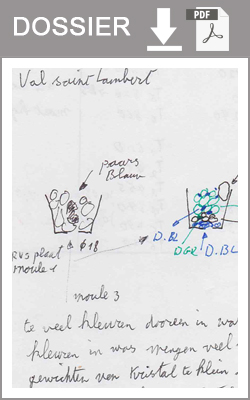 DOSSIER
PDF
Val Saint Lambert
paars
Blauw
φ 18
D.BL
DGR
D.BL
RVS plaat
moule 1
moule 3
te veel kleuren dooreen in
kleuren in was mengen veel
gewichten van Kristal te klein